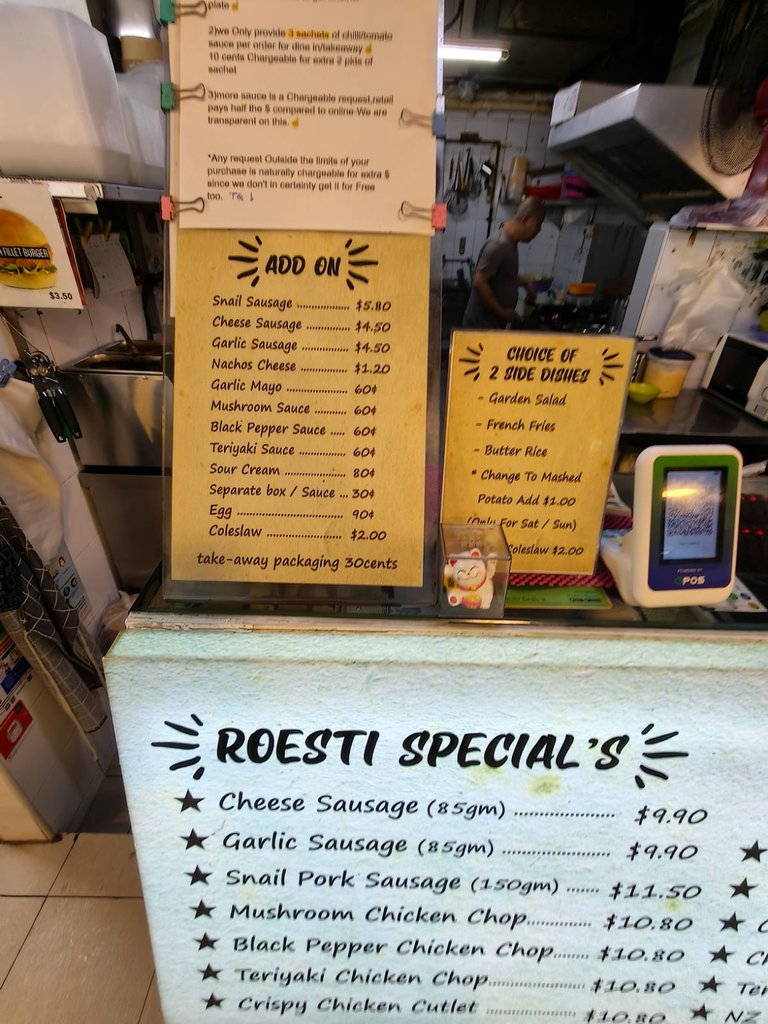 plate
2)we Only provide 3 sachets of chilli/tomato
sauce per order for dine in/takeaway
10 cents Chargeable for extra 2 pkts of
sachet
3)more sauce is a Chargeable request,retail
pays half the $ compared to online-We are
transparent on this.
*Any request Outside the limits of your
purchase is naturally chargeable for extra $
since we don't in certainly get it for Free
too.
FILLET BURGER
$3.50
ADD ON
Snail Sausage ................ $5.80
Cheese Sausage ............ $4.50
Garlic Sausage .............. $4.50
Nachos Cheese .............. $1.20
Garlic Mayo ................. 60¢
Mushroom Sauce .......... 60¢
Black Pepper Sauce ..... 60¢
Teriyaki Sauce ............. 60¢
Sour Cream ................. 80¢
Separate box / Sauce ... 30¢
Egg ............................. 90¢
Coleslaw ..................... $2.00
take-away packaging 30cents
CHOICE OF
2 SIDE DISHES
- Garden Salad
- French Fries
- Butter Rice
* Change To Mashed
Potato Add $1.00
(Only For Sat / Sun)
Coleslaw $2.00
POWERED BY
QPOS
ROESTI SPECIAL'S
★ Cheese Sausage (85gm) ...................... $9.90
★ Garlic Sausage (85gm) ........................ $9.90
★ Snail Pork Sausage (150gm) ....... $11.50
★ Mushroom Chicken Chop............... $10.80
★ Black Pepper Chicken Chop........... $10.80
★ Teriyaki Chicken Chop...................... $10.80
★ Crispy Chicken Cutlet ..................... $10.80
★ NZ